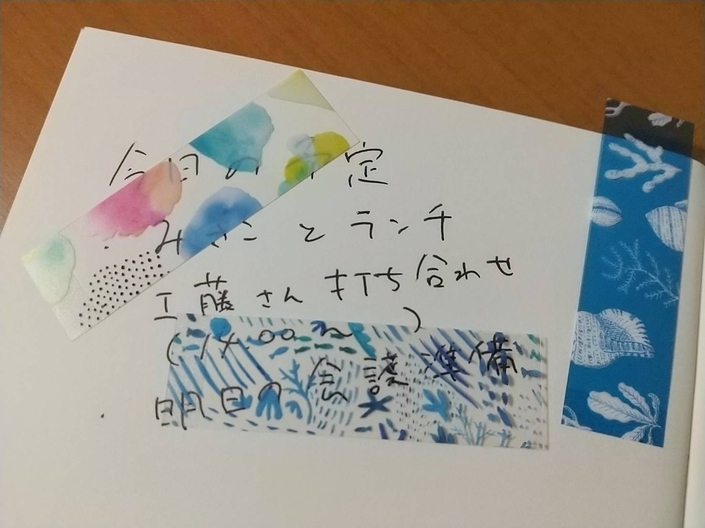 今日の予定
・みさことランチ
工藤さん打ち合わせ
(14:00〜)
・明日の会議準備